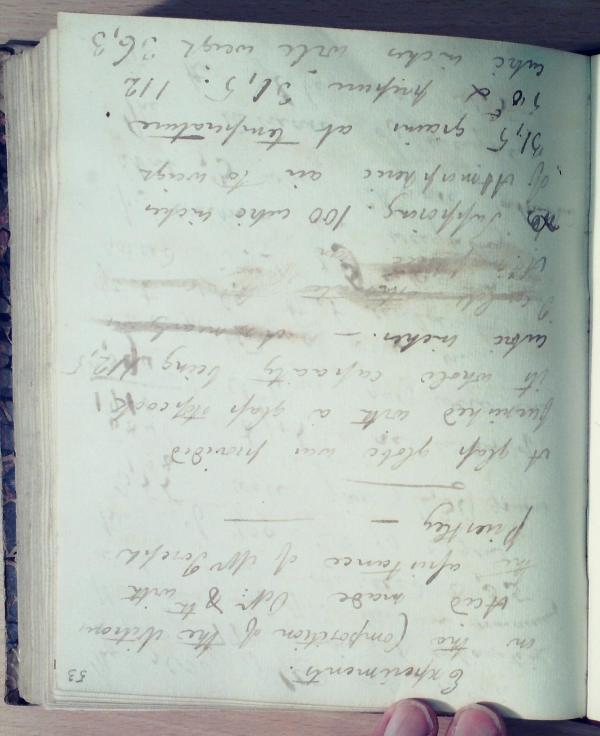 53
Experiments.
on the Composition of the Nitrous
Acid made Octr: 8th with
the assistance of Mr Joseph
Priestley —
A glass globe was provided
furnished with a glass stopcock
its whole capacity being 112,5
cubic inches. —
Supposing 100 cubic inches
of Atmospheric air to weigh
31,5 grains at temperature
50° & pressure 31,5: 112
cubic inches will weigh 36,3